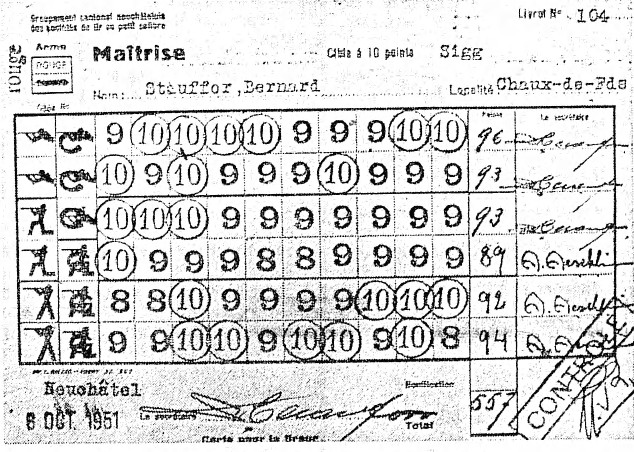 Groupement cantonal neuchâtelois
des sociétés de tir au petit calibre
Livret Nº 104
Arme
ROUGE
Maîtrise
Cible à 10 points
Sigg
Nom: Stauffer,Bernard
Localité Chaux-de-Fds
Passe
Le secrétaire
9 10 10 10 10 9 9 9 10 10 96
10 9 10 9 9 9 10 9 9 9 93
10 10 10 9 9 9 9 9 9 9 93
10 9 9 9 8 8 9 9 9 9 89
8 8 10 9 9 9 9 10 10 10 92
9 9 10 10 9 10 10 9 10 8 94
Neuchâtel
8 OCT. 1951
Le secrétaire
Total
557
CONTROLE